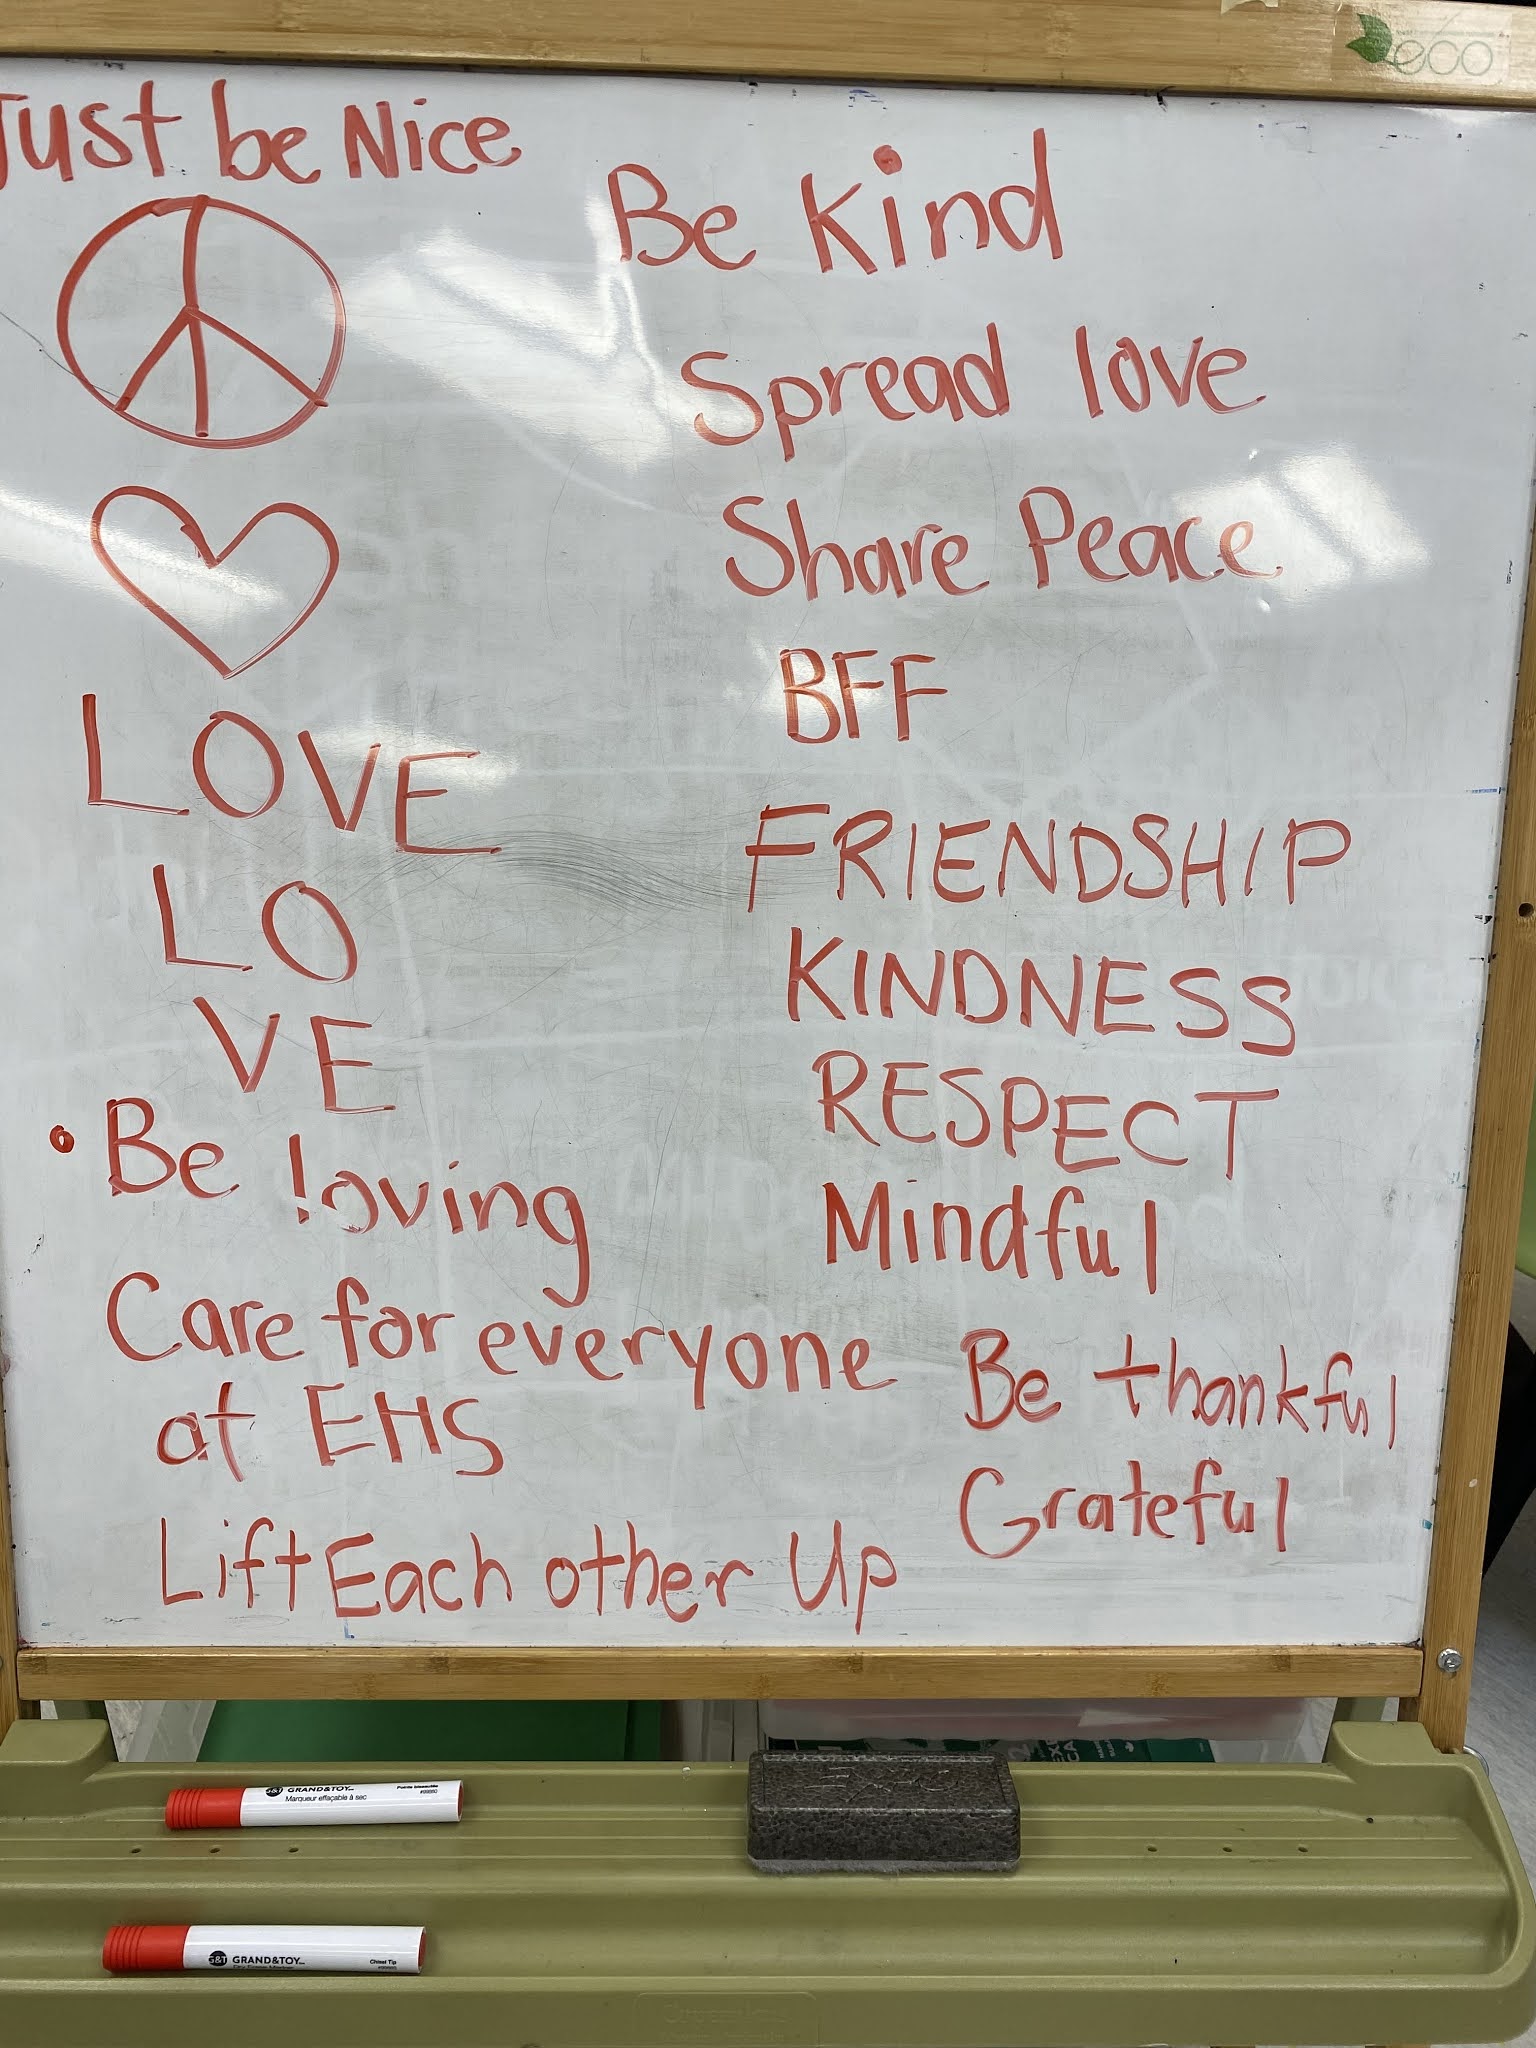 eco
Just be Nice
Be Kind
Spread love
Share Peace
BFF
LOVE
LO
VE
FRIENDSHIP
KINDNESS
RESPECT
Mindful
• Be loving
Care for everyone
at EHS
Be thankful
Grateful
Lift Each other Up
GRAND&TOY
Marqueur effaçable à sec
Pointe biseautée
G&T GRAND&TOY
Chisel Tip